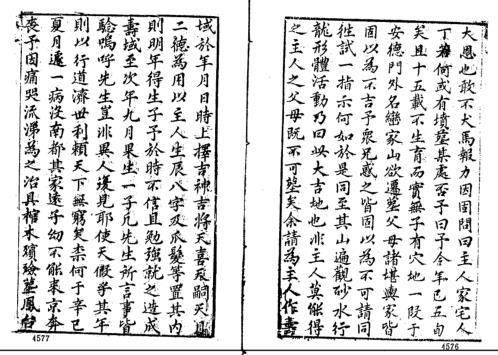 大恩也敢不犬馬報力因固問曰主人家宅人
丁若何或有墳墓某處否予曰予今年已五旬
矣且十五載不生育而實無子有穴地一段于
安德門外名巒家山欲遷塟父母諸堪輿家皆
固以為不吉予衆兄惑之皆固以為不可請同
徃試一指示何如於是同至其山遍觀砂水行
龍形體活動乃曰此大吉地也非主人莫能得
之主人之父母既不可塟矣余請為主人作壽
4576
域於年月日時上擇吉神吉將天喜及嗣天
二德為用以主人生辰八字及爪髮等置其內
則明年得生子予於時不信且勉強就之造成
壽域至次年九月果生一子凡先生所言事皆
驗嗚呼先生豈非異人復見耶使天假予其年
則以行道濟世利賴天下無窮矣柰何于辛巳
夏月遘一病沒南都其家遠子幼不能來京奔
喪予因痛哭流涕為之治具棺木殯殮塟鳳台
4577